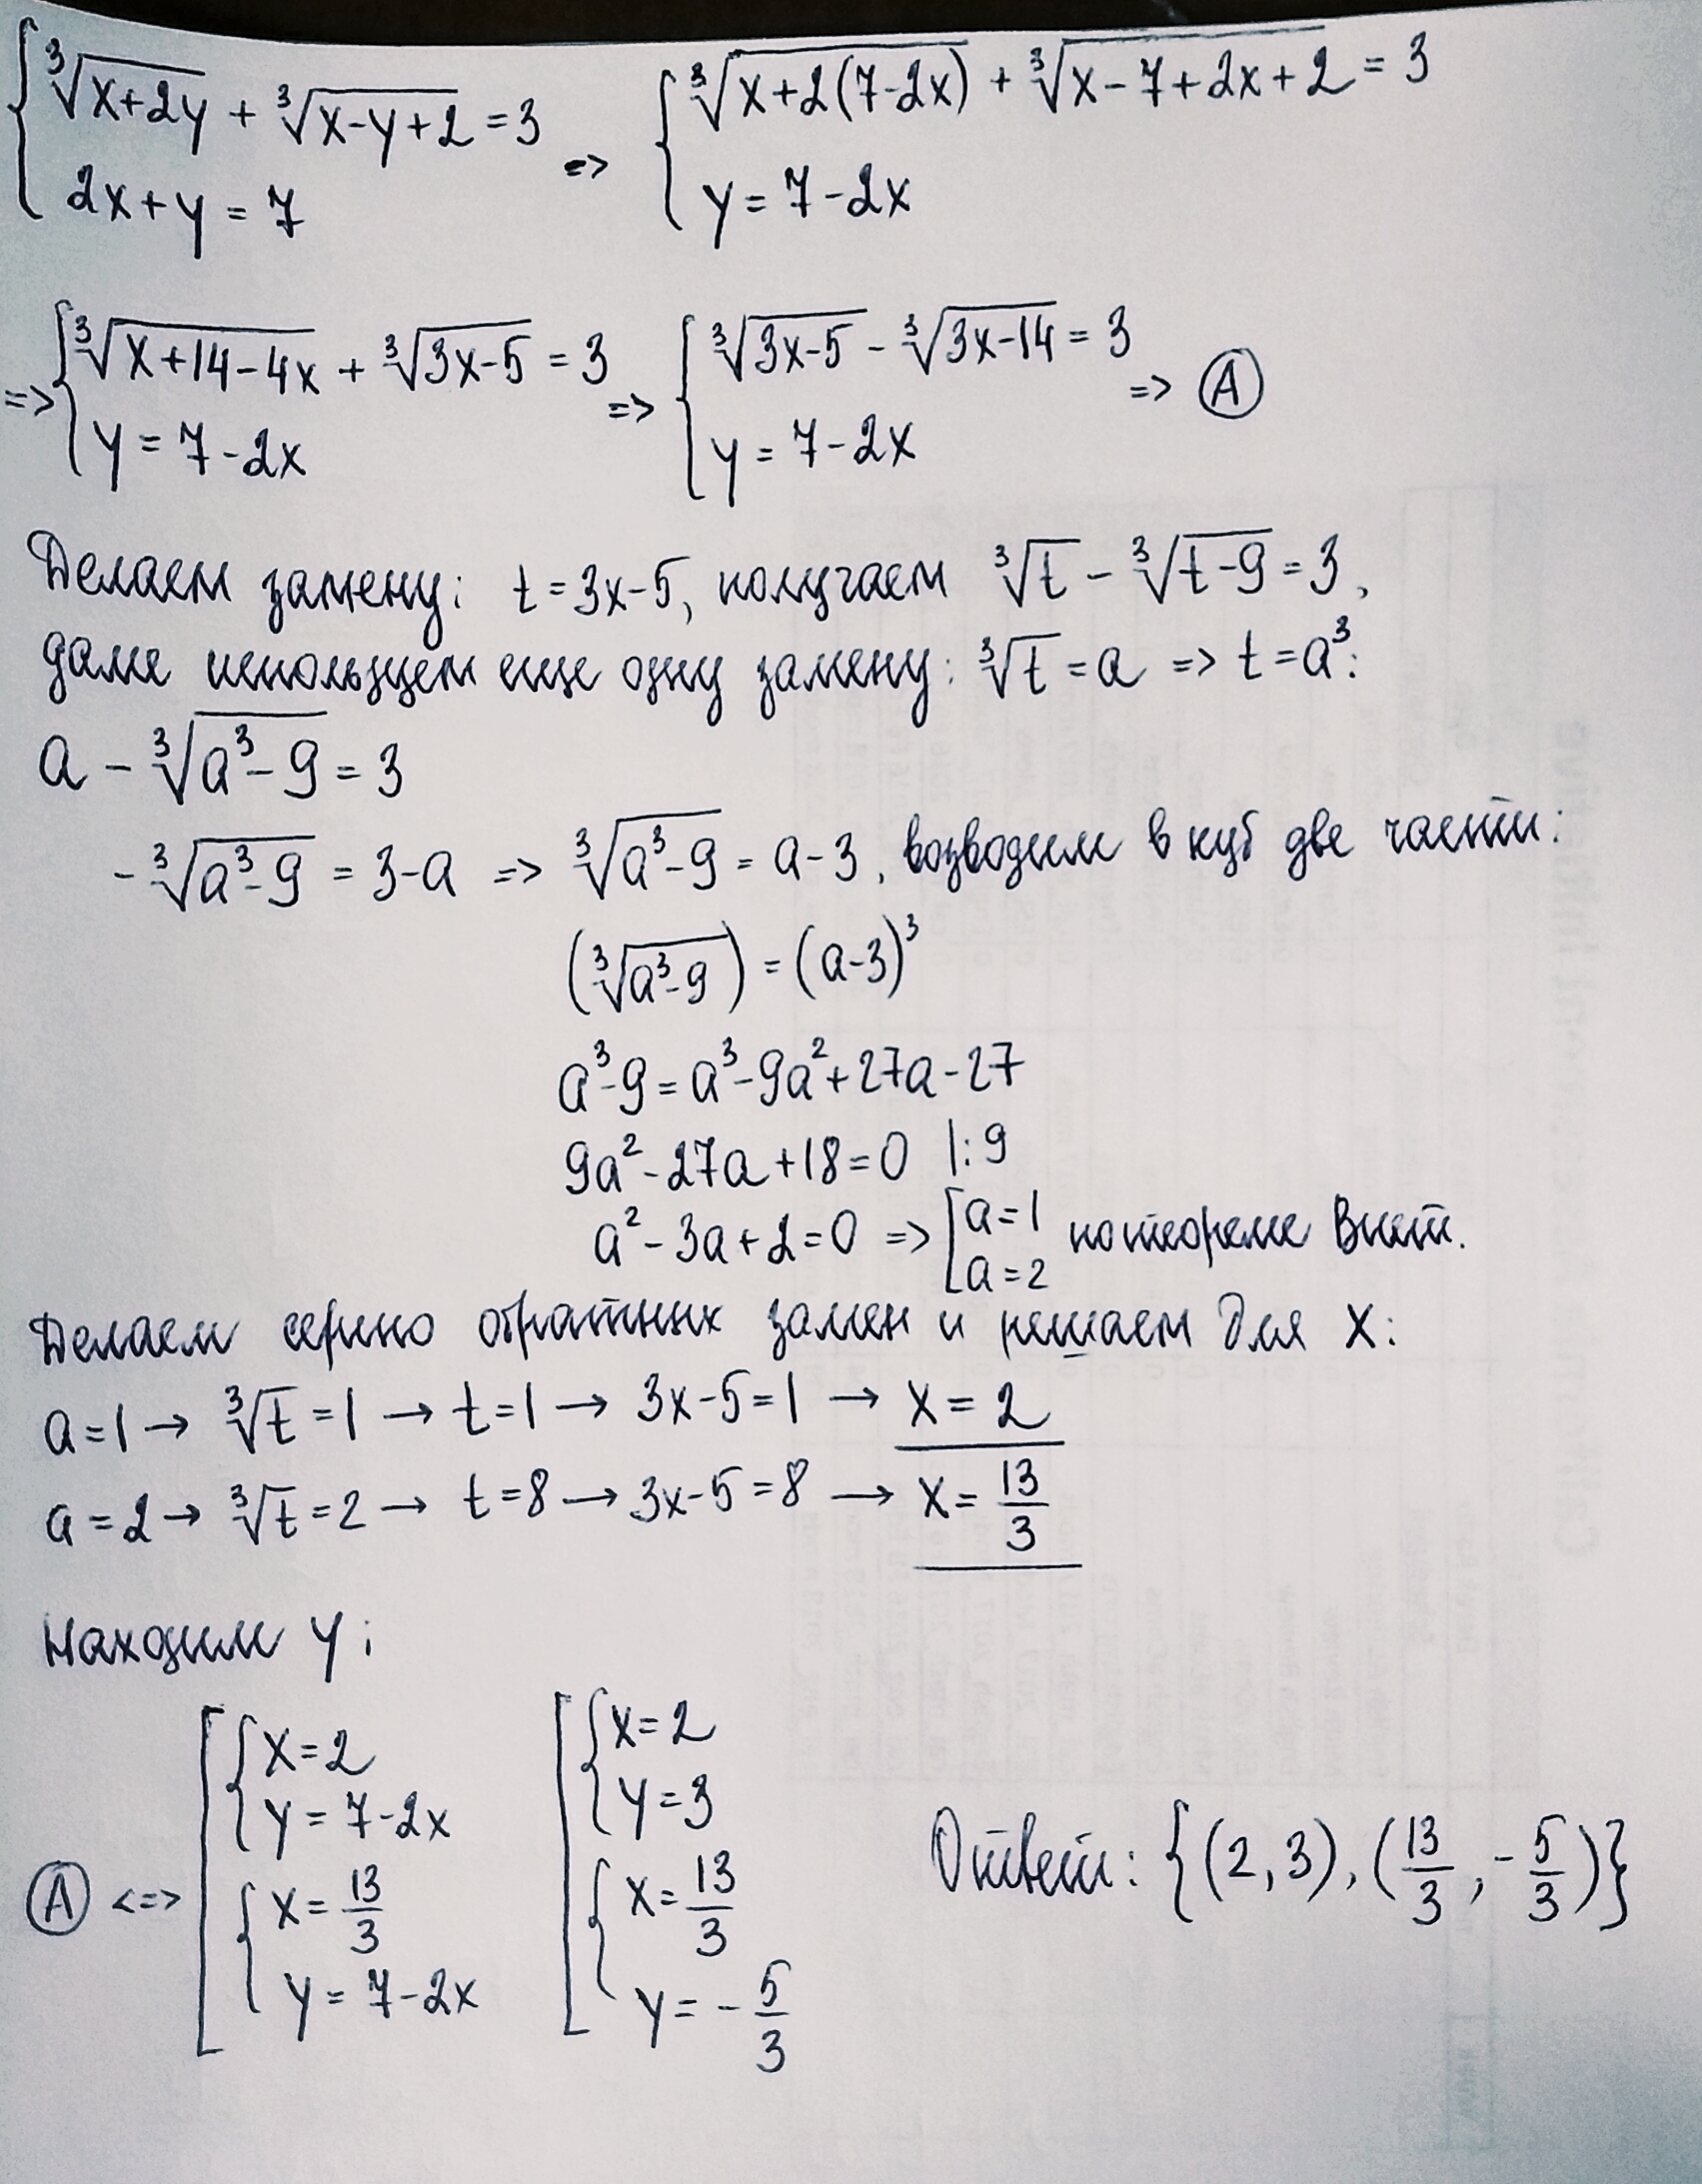 { ∛(x+2y) + ∛(x-y+2) = 3 => { ∛(x+2(7-2x)) + ∛(x-7+2x+2) = 3
2x+y = 7 y = 7-2x
=> { ∛(x+14-4x) + ∛(3x-5) = 3 => { ∛(3x-5) - ∛(3x-14) = 3 => Ⓐ
y = 7-2x y = 7-2x
Делаем замену: t = 3x-5, получаем ∛t - ∛(t-9) = 3,
далее используем еще одну замену: ∛t = a => t = a³:
a - ∛(a³-9) = 3
-∛(a³-9) = 3-a => ∛(a³-9) = a-3, возводим в куб две части:
(∛(a³-9)) = (a-3)³
a³-9 = a³-9a²+27a-27
9a²-27a+18=0 |:9
a²-3a+2=0 => [ a=1 по теореме Виет.
a=2
Делаем серию обратных замен и решаем для x:
a=1 → ∛t = 1 → t=1 → 3x-5=1 → x = 2
a=2 → ∛t = 2 → t=8 → 3x-5=8 → x = 13/3
Находим y:
[ { x=2 [ { x=2
y = 7-2x y=3
Ⓐ <=> { x = 13/3 { x = 13/3 Ответ: {(2,3), (13/3, -5/3)}
y = 7-2x y = -5/3